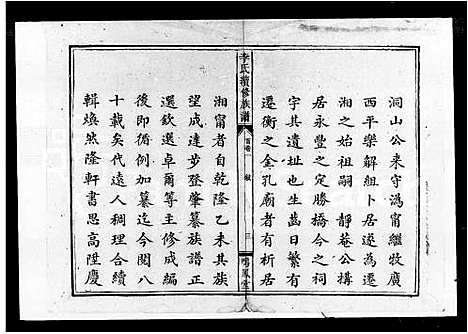 洞山公來守溈甯繼牧廣
西平樂解組卜居遂為遷
湘之始祖嗣靜菴公搆
居永豐之定勝橋今之祠
宇其遺址也生日繁有
遷衡之金孔廟者有析居
李氏續修族譜
首卷
三
鳴鳳堂
湘甯者自乾隆乙未其族
望成達步登肇纂族譜正
選欽選卓爾等主修成編
後即循例加纂迄今閱八
十載矣代遠人稠理合續
輯煥然隆軒書思高陞慶